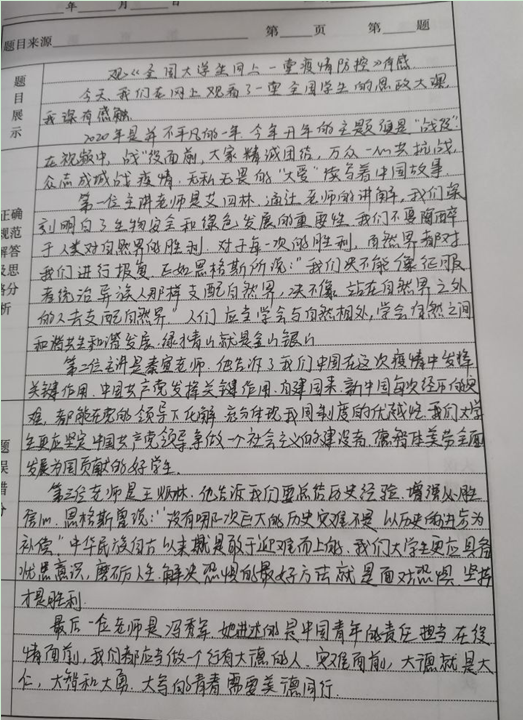 年 月 日
题目来源 第 页 第 题
题目展示
观《全国大学生同上一堂疫情防控》有感
今天,我们在网上观看了一堂全国学生的思政大课,
我深有感触.
2020年是并不平凡的一年.今年开年的主题便是"战疫".
在视频中,"战"疫面前,大家精诚团结,万众一心共抗战,
众志成城战疫情.无私无畏的"大爱"续写着中国故事.
第一位主讲老师是艾四林.通过老师的讲解,我们深
刻明白了生物安全和绿色发展的重要性.我们不要陶醉
于人类对自然界的胜利.对于每一次的胜利,自然界都对
我们进行报复.正如恩格斯所说:"我们决不能像征服
者统治异族人那样支配自然界,决不像站在自然界之外
的人去支配自然界."人们应当学会与自然相处,学会自然之间
和谐共生和谐发展.绿水青山就是金山银山
第二位主讲是秦宣老师.他告诉了我们中国在这次疫情中发挥
关键作用.中国共产党发挥关键作用.自建国来,新中国每次经历的灾
难,都能在党的领导下化解.充分体现我国制度的优越性.我们大学
生更应坚定中国共产党领导争做一个社会主义的建设者.德智体美劳全面
发展为国贡献的好学生.
第三位老师是王炳林.他告诉我们要总结历史经验.增强必胜
信心.恩格斯曾说:"没有哪一次巨大的历史灾难不是以历史的进步为
补偿."中华民族自古以来就是敢于迎难而上的.我们大学生更应具备
忧患意识,磨砺人生.解决恐惧的最好方法就是面对恐惧.坚持
才是胜利.
最后一位老师是冯秀军.她讲述的是中国青年的责任担当.在疫
情面前,我们都应当做一个行有大德的人.灾难面前,大德就是大
仁,大智和大勇.大写的青春需要美德同行.
正确
规范
解答
及思
路分
析
题
误
错
分